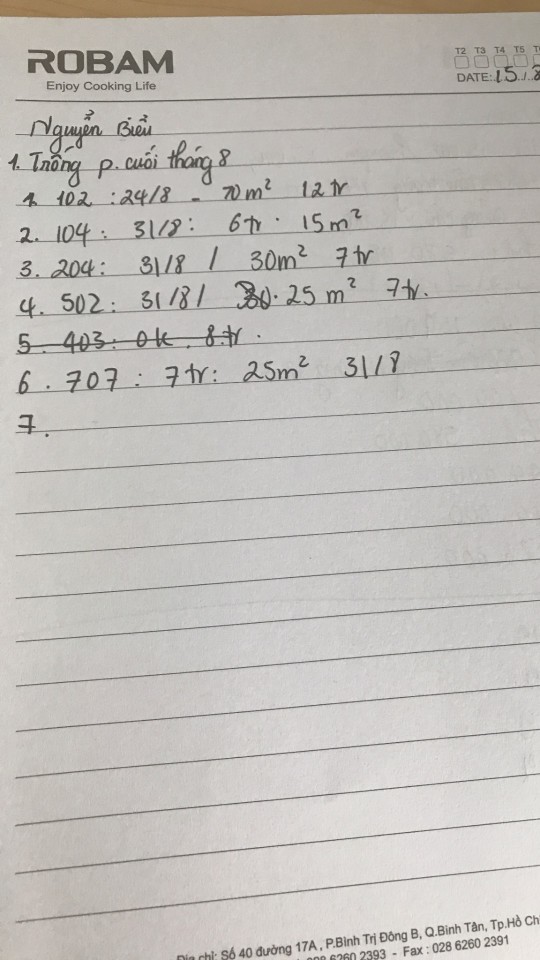 ROBAM
Enjoy Cooking Life
T2 T3 T4 T5
DATE: 15./.8
Nguyễn Biểu
1. Trống p. cuối tháng 8
1. 102 : 24/8 - 70m² 12 tr
2. 104 : 31/8 : 6tr . 15m²
3. 204: 31/8 / 30m² 7tr
4. 502: 31/8/ 30. 25 m² 7tr.
5. 403: ok. 8.tr.
6. 707 : 7tr: 25m² 31/8
7.
Địa chỉ: Số 40 đường 17A, P.Bình Trị Đông B, Q.Bình Tân, Tp.Hồ
028 6260 2393 - Fax : 028 6260 2391